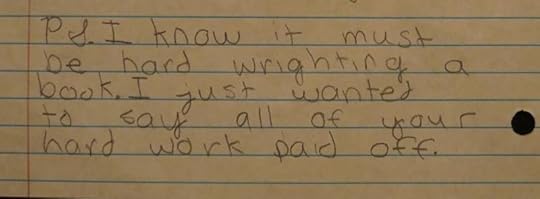 P.S. I know it must
be hard wrighting a
book. I just wanted
to say all of your
hard work paid off.